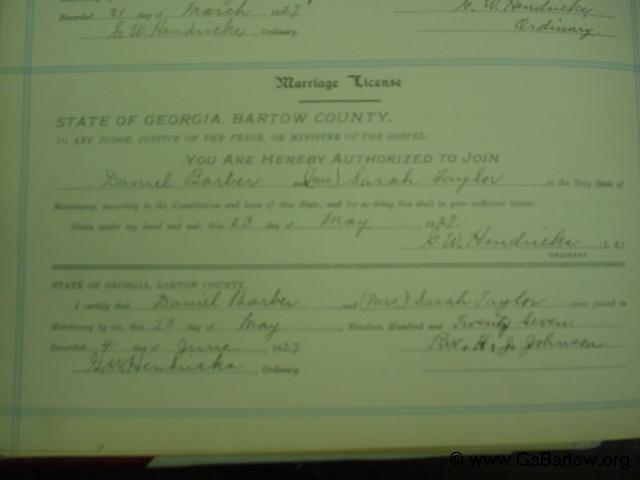 Recorded 21 day of March , 1927
G. W. Hendricks
G W Hendricks , Ordinary.
Ordinary.
Marriage License
STATE OF GEORGIA, BARTOW COUNTY.
TO ANY JUDGE, JUSTICE OF THE PEACE, OR MINISTER OF THE GOSPEL:
YOU ARE HEREBY AUTHORIZED TO JOIN
Daniel Barber and (Mrs) Sarah Taylor in the Holy State of
Matrimony, according to the Constitution and laws of this State, and for so doing this shall be your sufficient license.
Given under my hand and seal, this 23 day of May 1927.
G. W. Hendricks (L. S.)
ORDINARY.
STATE OF GEORGIA, BARTOW COUNTY.
I certify that Daniel Barber and (Mrs) Sarah Taylor were joined in
Matrimony by me, this 23 day of May , Nineteen Hundred and Twenty Seven.
Recorded 4 day of June , 1927 Rev. H. J. Johnson
G W Hendricks , Ordinary.
© www.GaBartow.org